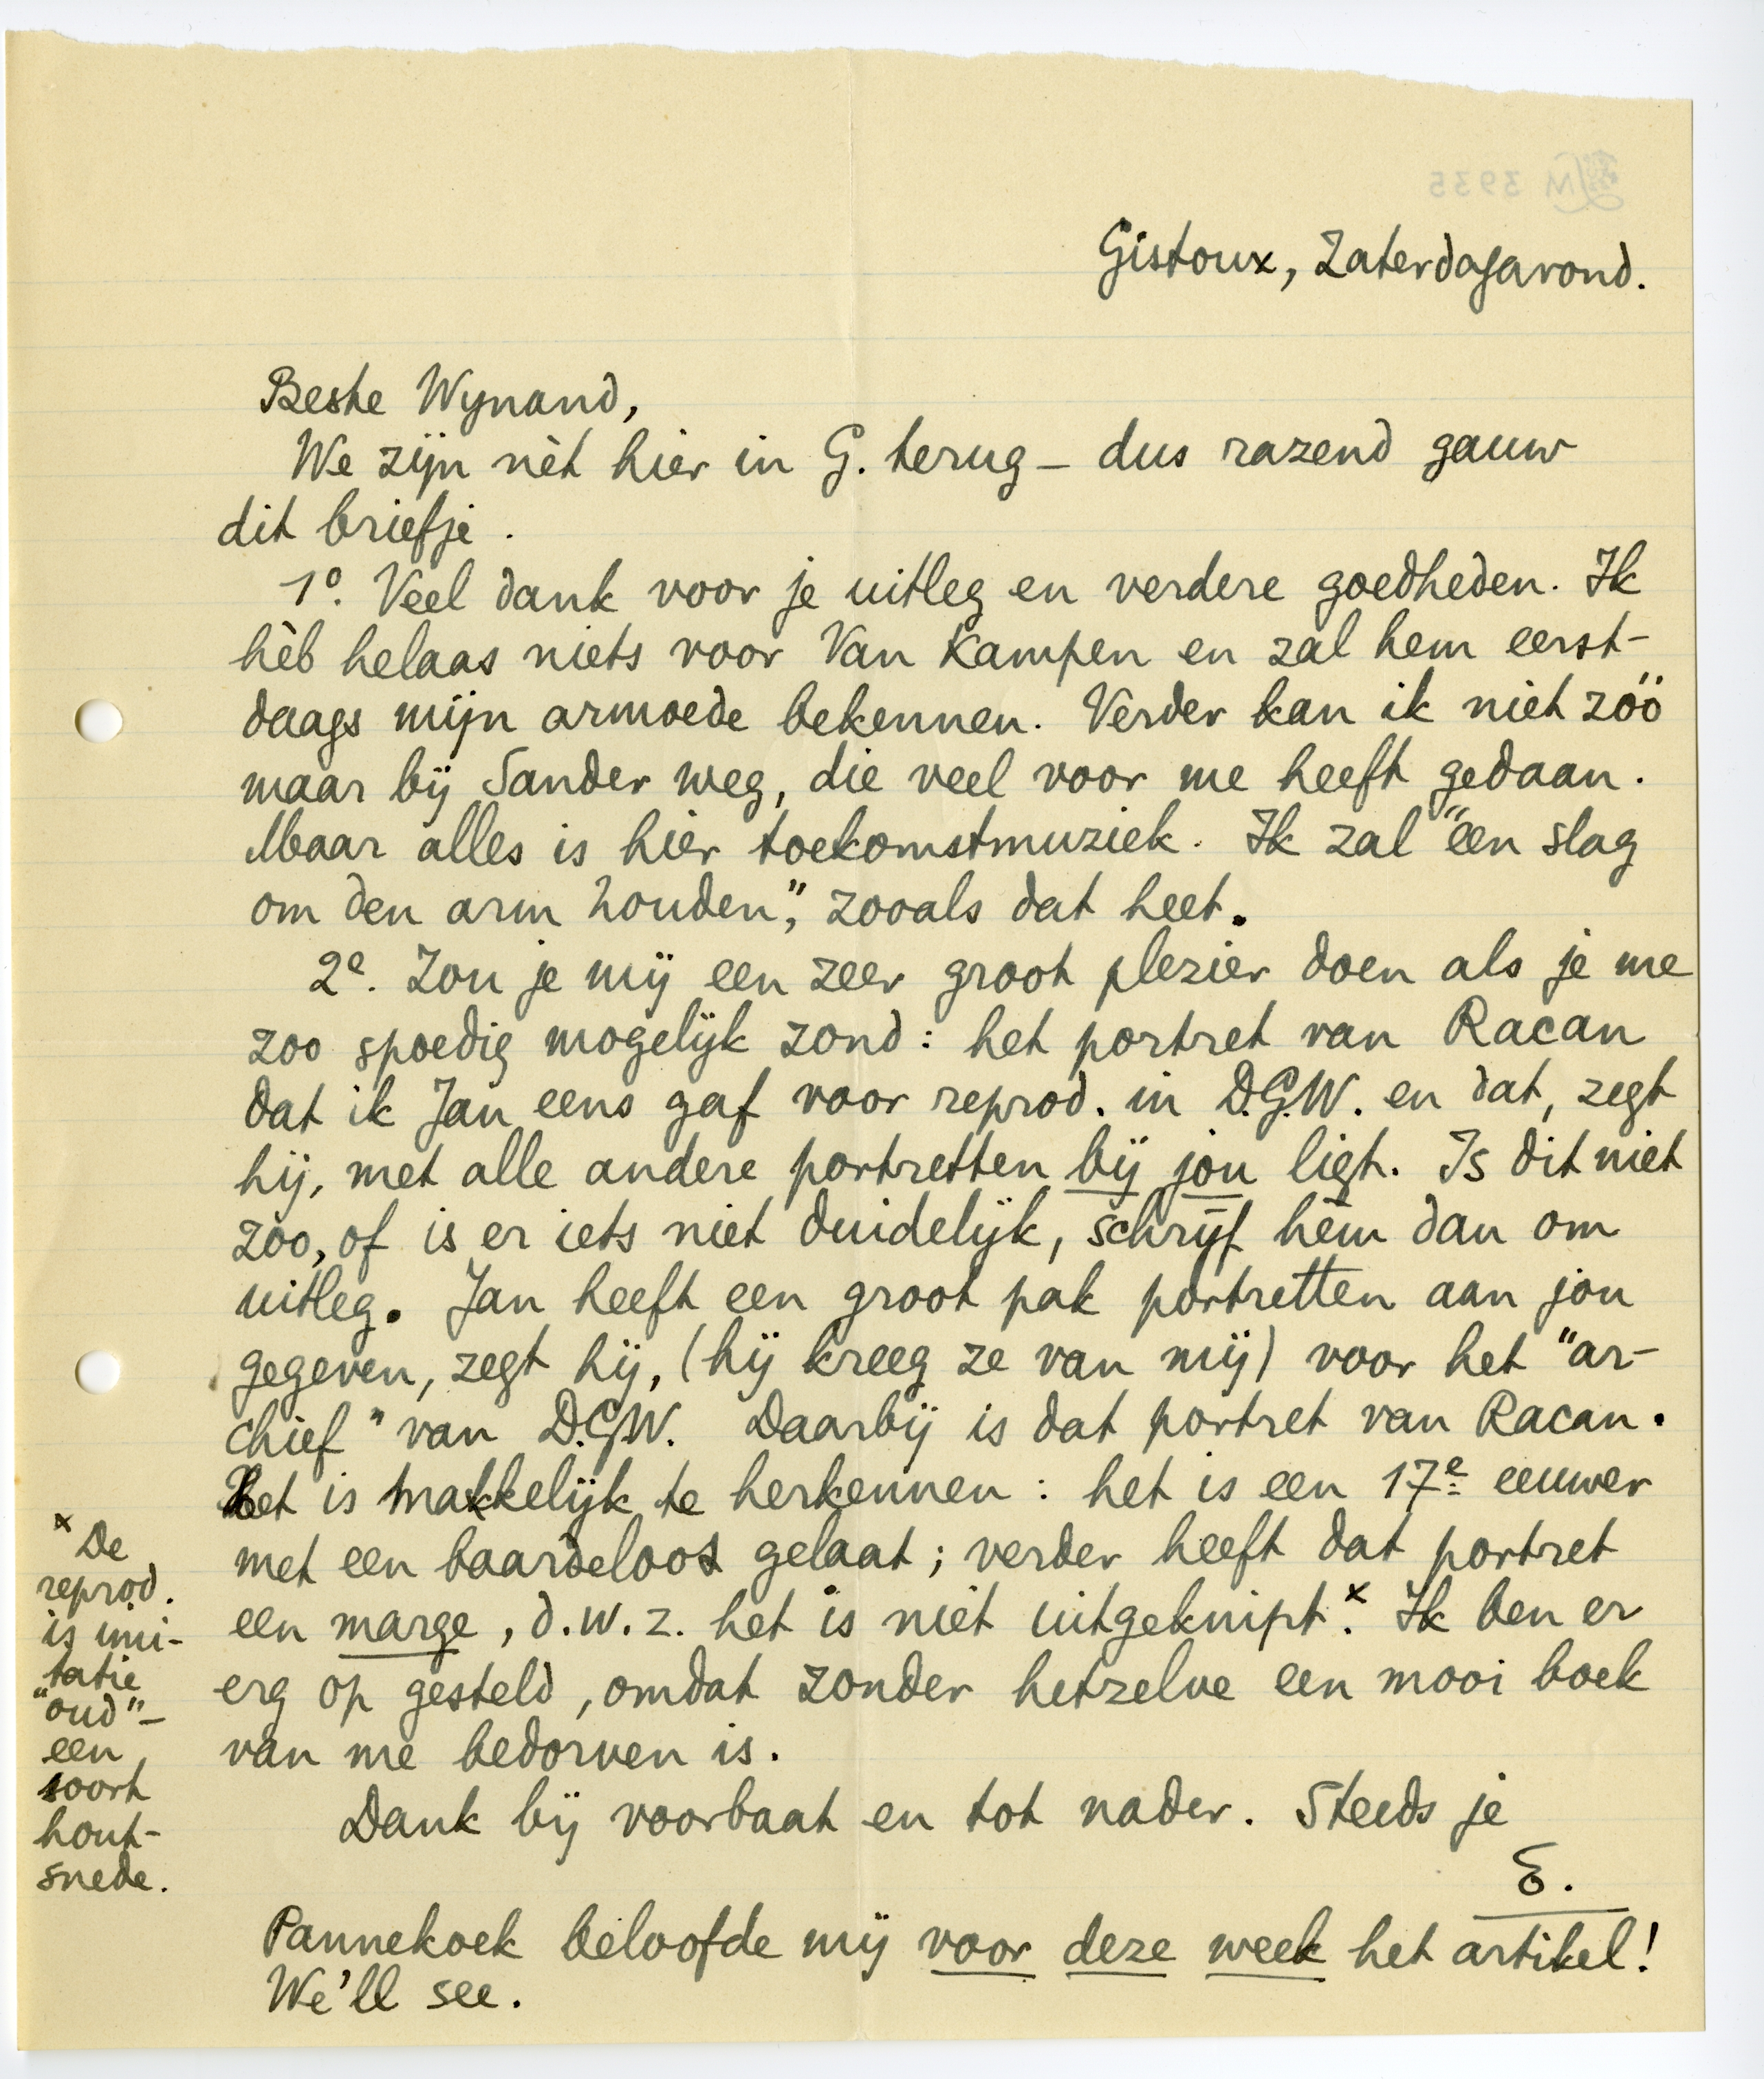 Gistoux, Zaterdagavond.
Beste Wynand,
We zijn nèt hier in G. terug – dus razend gauw
dit briefje.
1º. Veel dank voor je uitleg en verdere goedheden. Ik
hèb helaas niets voor Van Kampen en zal hem eerst-
daags mijn armoede bekennen. Verder kan ik niet zóó
maar bij Sander weg, die veel voor me heeft gedaan.
Maar alles is hier toekomstmuziek. Ik zal "een slag
om den arm houden", zooals dat heet.
2e. Zou je mij een zeer groot plezier doen als je me
zoo spoedig mogelijk zond: het portret van Racan
dat ik Jan eens gaf voor reprod. in D.G.W. en dat, zegt
hij, met alle andere portretten bij jou ligt. Is dit niet
zoo, of is er iets niet duidelijk, schrijf hèm dan om
uitleg. Jan heeft een groot pak portretten aan jou
gegeven, zegt hij, (hij kreeg ze van mij) voor het "ar-
chief" van D.G.W. Daarbij is dat portret van Racan.
Het is makkelijk te herkennen: het is een 17e eeuwer
met een baardeloos gelaat; verder heeft dat portret
een marge, d.w.z. het is niet uitgeknipt.x Ik ben er
erg op gesteld, omdat zonder hetzelve een mooi boek
van me bedorven is.
Dank bij voorbaat en tot nader. Steeds je
E.
Pannekoek beloofde mij voor deze week het artikel!
We'll see.
x De
reprod.
is imi-
tatie
"oud" –
een
soort
hout-
snede.
LM 3935